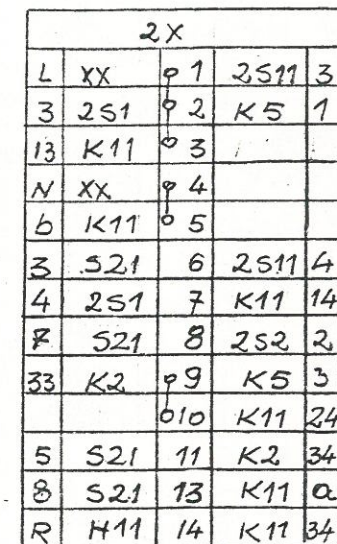 2X
L XX 1 2S11 3
3 2S1 2 K5 1
13 K11 3
N XX 4
b K11 5
3 S21 6 2S11 4
4 2S1 7 K11 14
7 S21 8 2S2 2
33 K2 9 K5 3
10 K11 24
5 S21 11 K2 34
8 S21 13 K11 a
R H11 14 K11 34